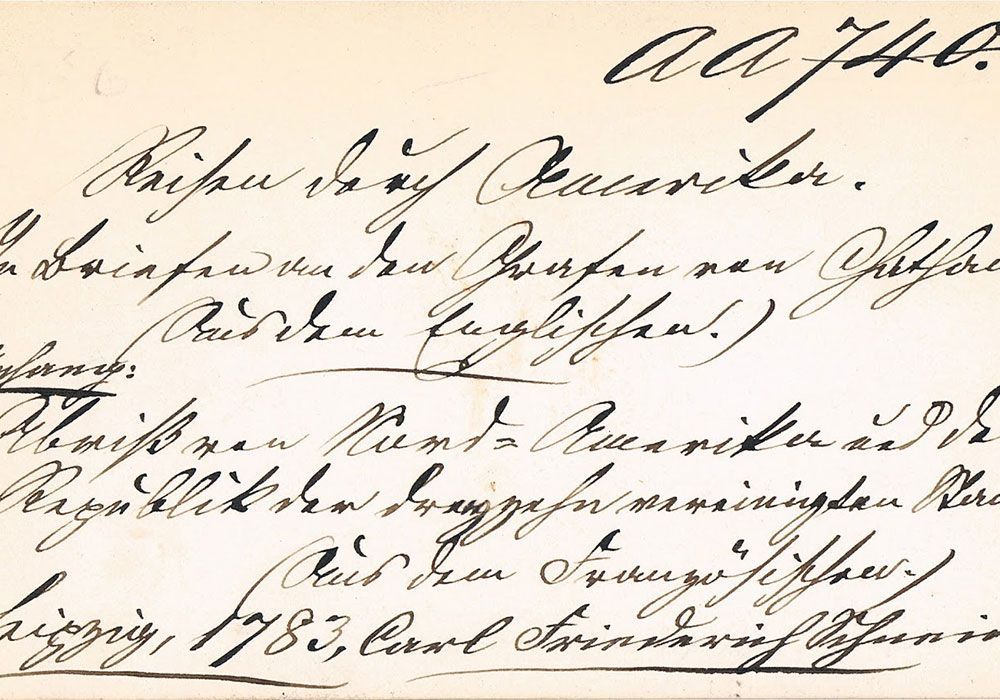 AA 740.
Reisen durch Amerika.
In Briefen an den Grafen von Chatham
(Aus dem Englischen.)
Anhang:
Abriß von Nord-Amerika und de
Republik der dreyzehn vereinigten Staa
(Aus dem Französischen.)
Leipzig, 1783, Carl Friederich Schnei